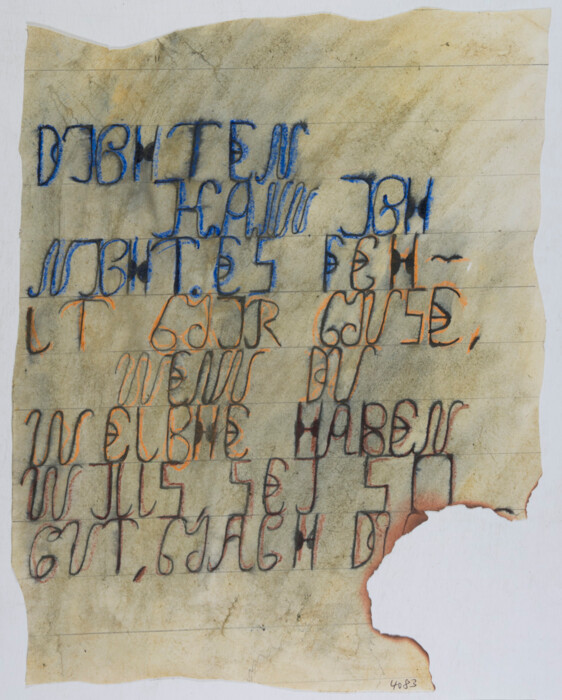 DICHTEN
KANN ICH
NICHT. ES FEH~
LT MIR MUSE,
WENN DU
WELCHE HABEN
WILLS, SEI SO
GUT, MACH DU
4083